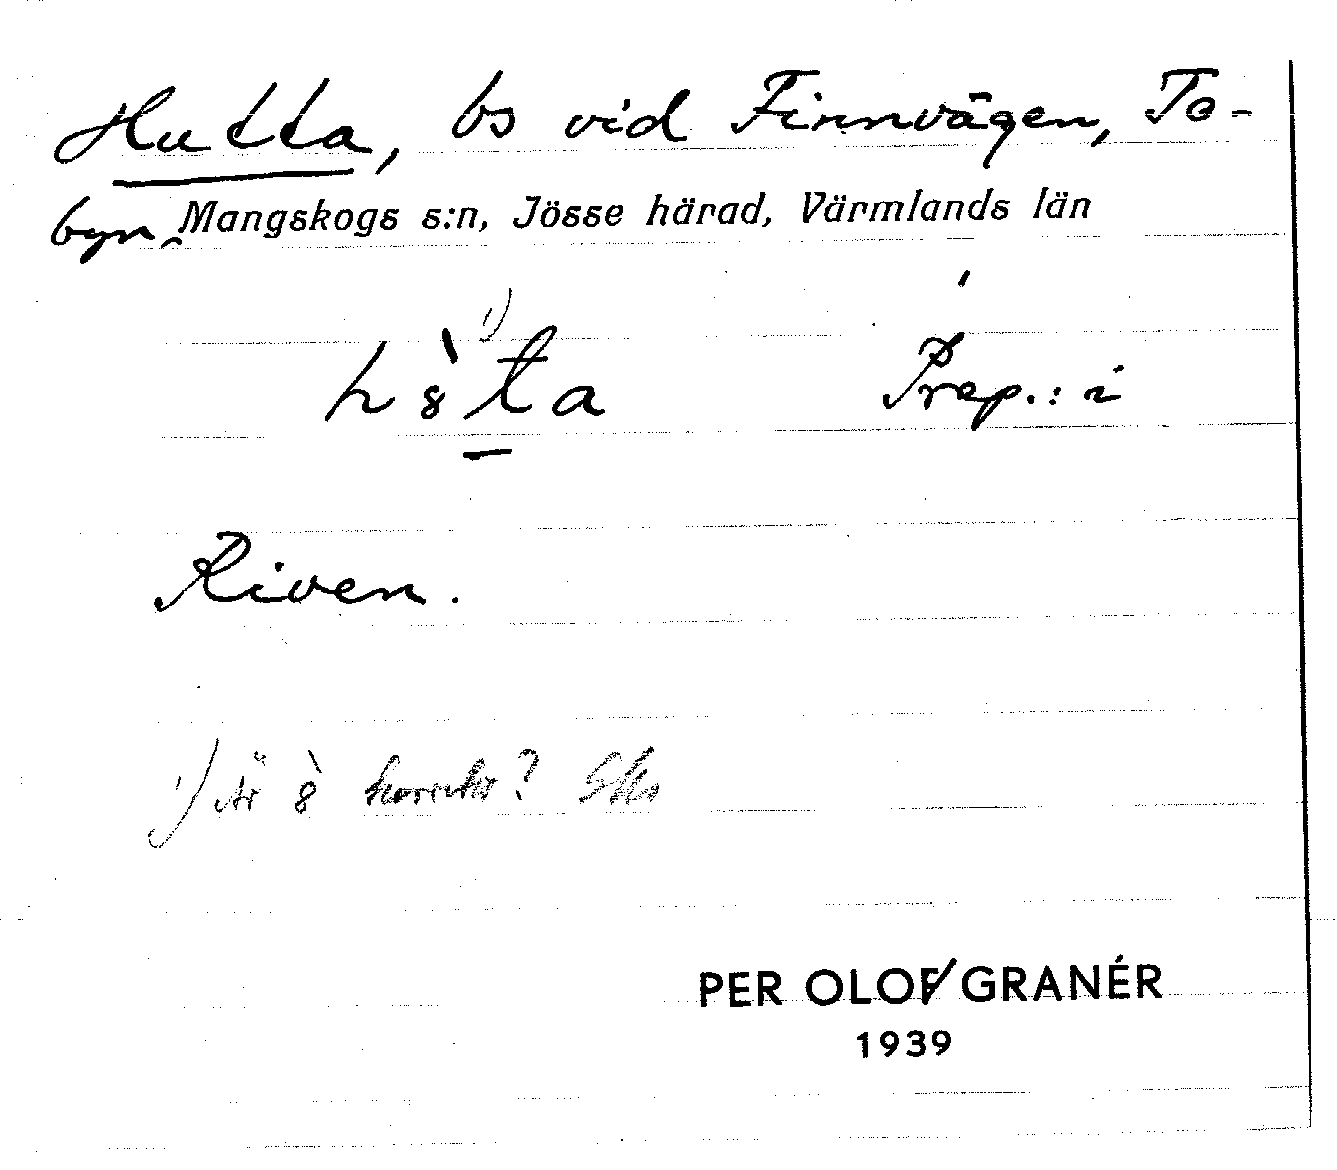 Hutta, bs vid Finnvägen, To-
byn, Mangskogs s:n, Jösse härad, Värmlands län
h8̀ta 1) Prep.: i
Riven.
1) Är 8̀ korrekt?
PER OLOF GRANÉR
1939